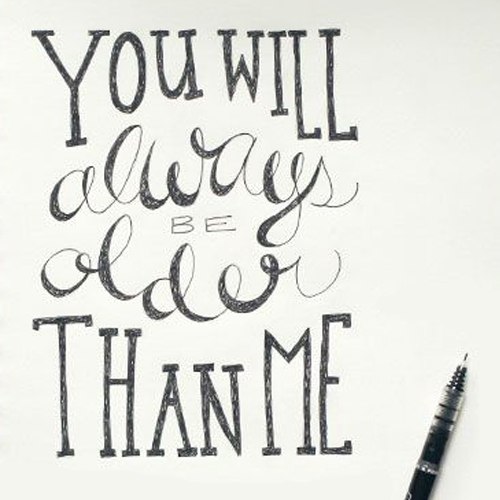 YOU WILL
always
BE
older
THAN ME